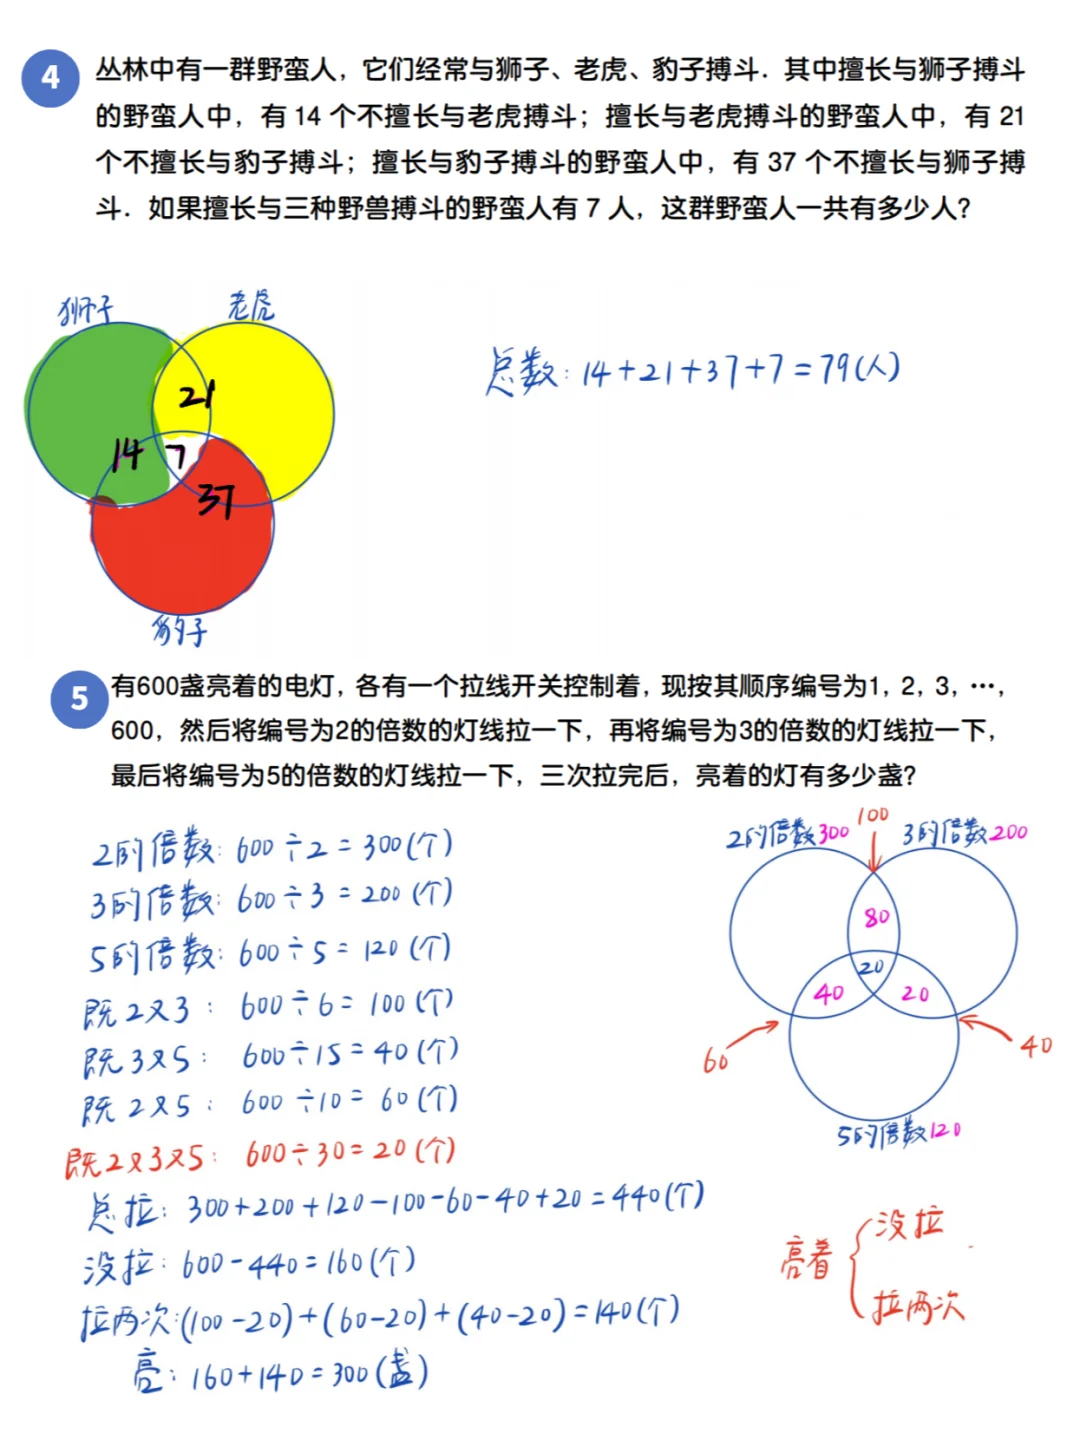 4
丛林中有一群野蛮人，它们经常与狮子、老虎、豹子搏斗．其中擅长与狮子搏斗
的野蛮人中，有 14 个不擅长与老虎搏斗；擅长与老虎搏斗的野蛮人中，有 21
个不擅长与豹子搏斗；擅长与豹子搏斗的野蛮人中，有 37 个不擅长与狮子搏
斗．如果擅长与三种野兽搏斗的野蛮人有 7 人，这群野蛮人一共有多少人？
狮子
老虎
21
14
7
37
豹子
总数：14+21+37+7=79(人)
5
有600盏亮着的电灯，各有一个拉线开关控制着，现按其顺序编号为1，2，3，…，
600，然后将编号为2的倍数的灯线拉一下，再将编号为3的倍数的灯线拉一下，
最后将编号为5的倍数的灯线拉一下，三次拉完后，亮着的灯有多少盏？
2的倍数：600÷2=300(个)
3的倍数：600÷3=200(个)
5的倍数：600÷5=120(个)
既2又3：600÷6=100(个)
既3又5：600÷15=40(个)
既2又5：600÷10=60(个)
既2又3又5：600÷30=20(个)
总拉：300+200+120-100-60-40+20=440(个)
没拉：600-440=160(个)
拉两次：(100-20)+(60-20)+(40-20)=140(个)
亮：160+140=300(盏)
100
2的倍数300
3的倍数200
80
20
40
20
60
40
5的倍数120
没拉
亮着
拉两次